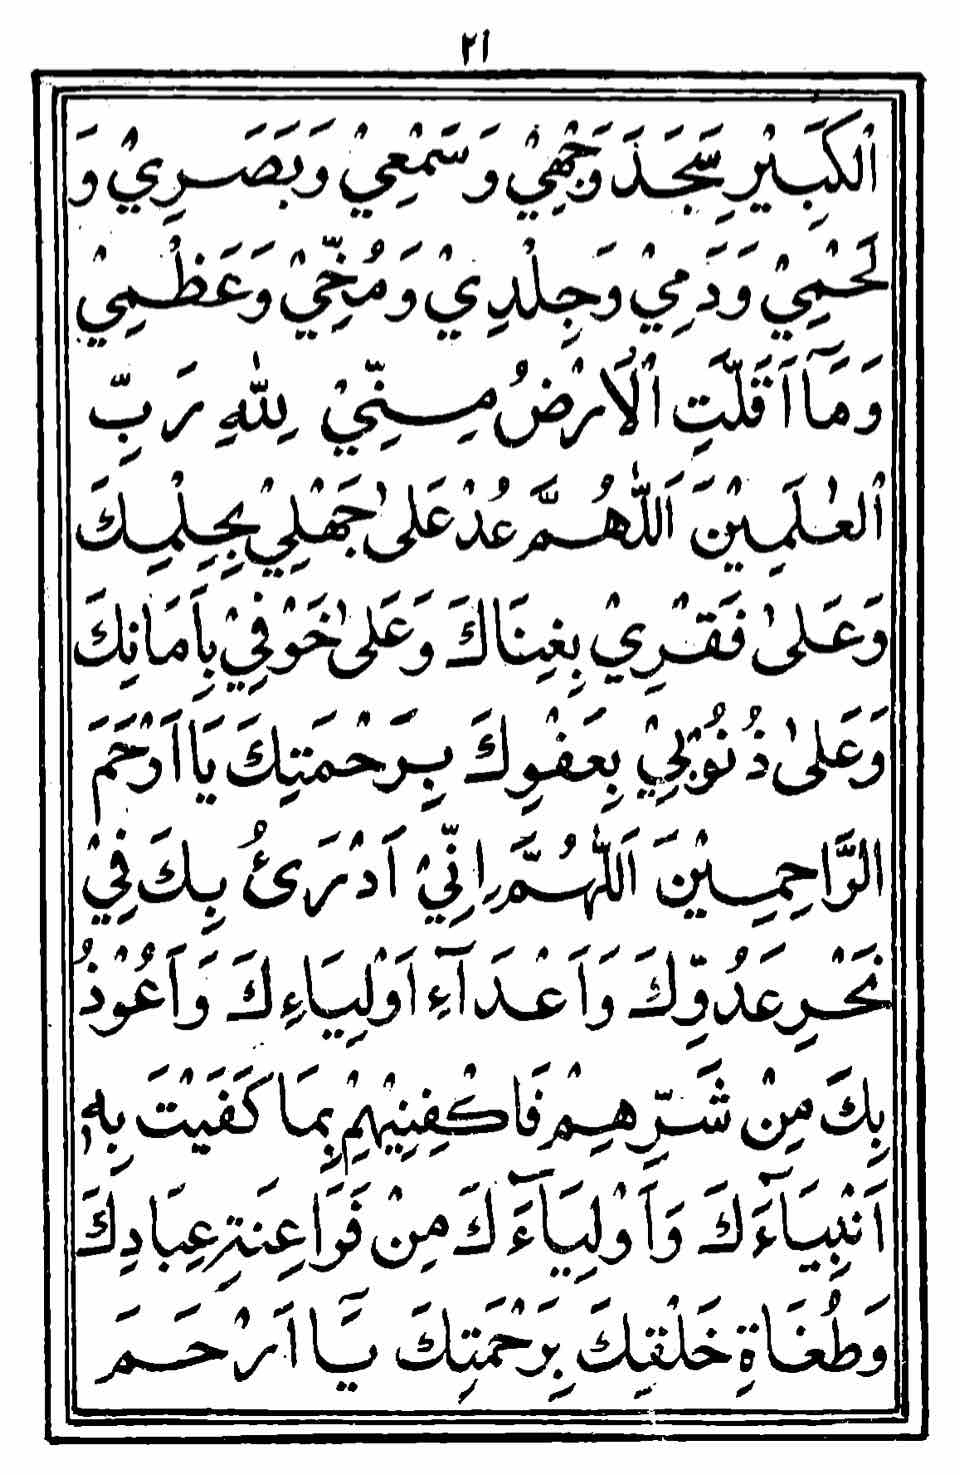 ٢١
الْكَبِيْرِ سَجَدَ وَجْهِيْ وَسَمْعِيْ وَبَصَرِيْ وَ
لَحْمِيْ وَدَمِيْ وَجِلْدِيْ وَمُخِّيْ وَعَظْمِيْ
وَمَآ اَقَلَّتِ الْاَرْضُ مِنِّيْ لِلّٰهِ رَبِّ
الْعٰلَمِيْنَ اَللّٰهُمَّ عُدْ عَلٰى جَهْلِيْ بِحِلْمِكَ
وَعَلٰى فَقْرِيْ بِغِنَاكَ وَعَلٰى خَوْفِيْ بِاَمَانِكَ
وَعَلٰى ذُنُوْبِيْ بِعَفْوِكَ بِرَحْمَتِكَ يَا اَرْحَمَ
الرَّاحِمِيْنَ اَللّٰهُمَّ اِنِّيْ اَدْرَئُ بِكَ فِيْ
نَحْرِ عَدُوِّكَ وَاَعْدَآءِ اَوْلِيَاءِكَ وَاَعُوْذُ
بِكَ مِنْ شَرِّهِمْ فَاكْفِنِيْهِمْ بِمَا كَفَيْتَ بِهٖ
اَنْبِيَآءَكَ وَاَوْلِيَآءَكَ مِنْ فَرَاعِنَةِ عِبَادِكَ
وَطُغَاةِ خَلْقِكَ بِرَحْمَتِكَ يَا اَرْحَمَ